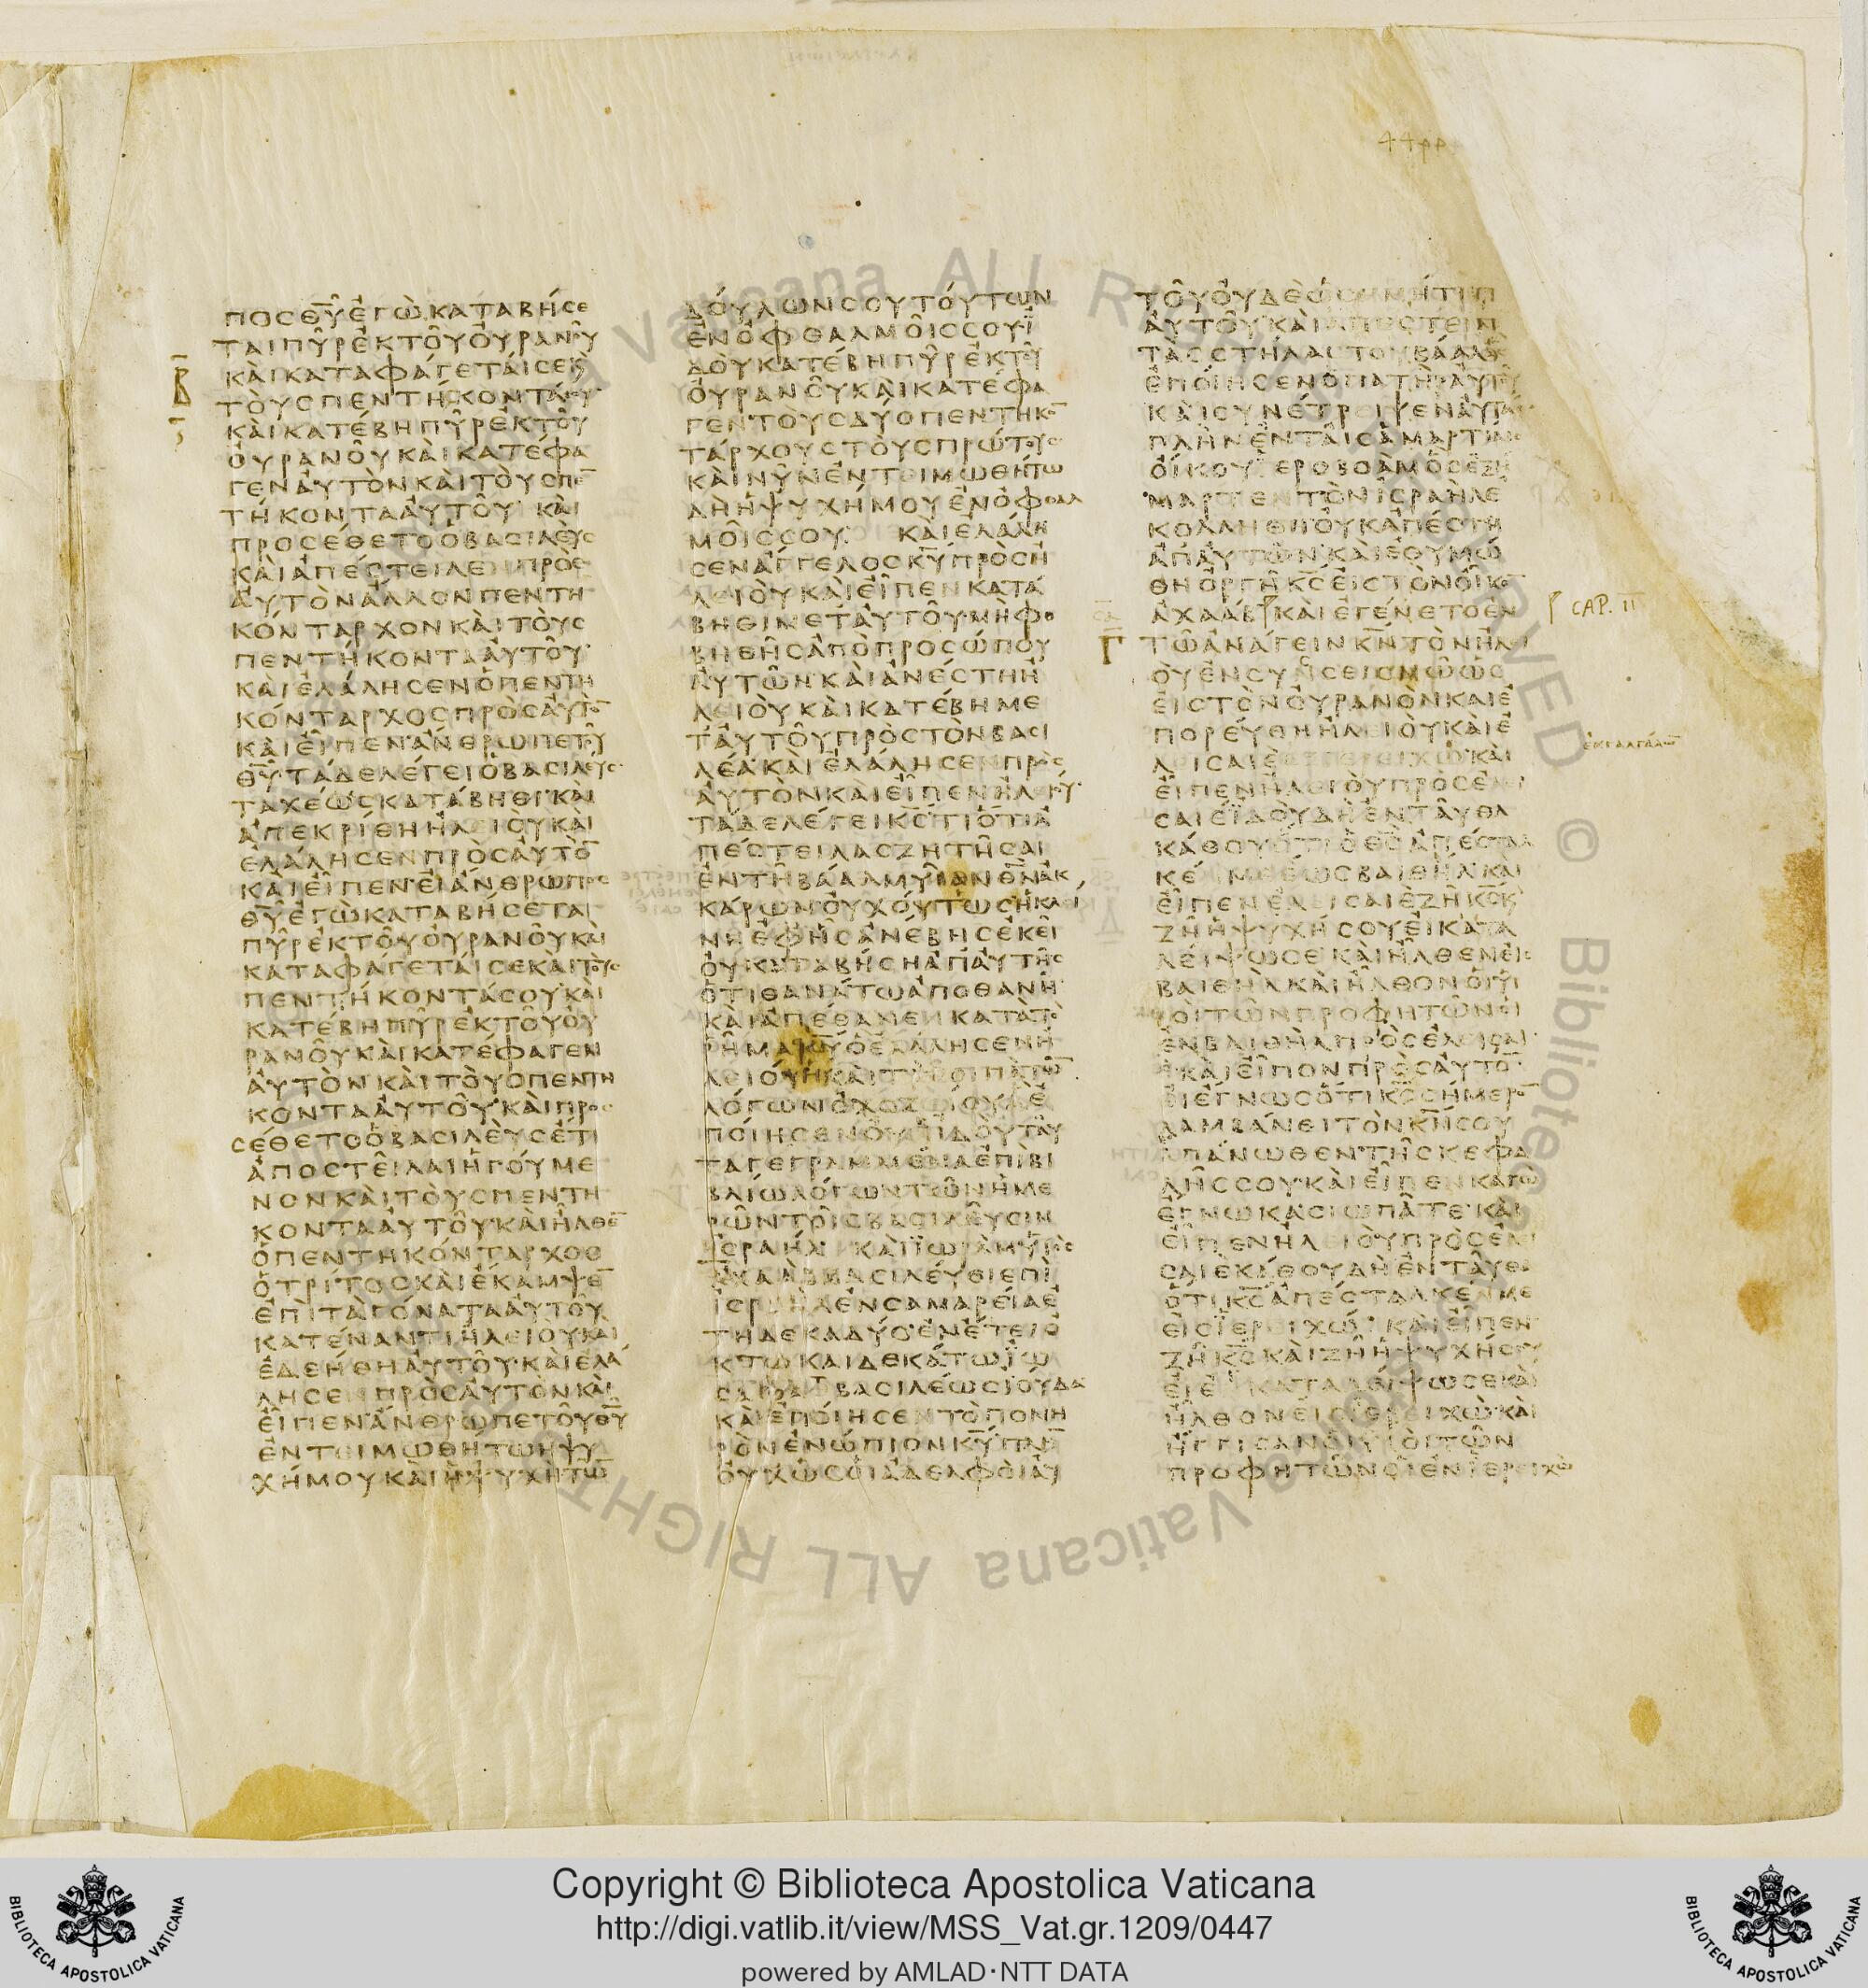 ΠΟϹΘΥ̅ΕΓѠΚΑΤΑΒΗϹΕ
ΤΑΙΠΥΡΕΚΤΟΥΟΥΡΑΝΟΥ
ΚΑΙΚΑΤΑΦΑΓΕΤΑΙϹΕΚΑΙ
ΤΟΥϹΠΕΝΤΗΚΟΝΤΑϹΟΥ
ΚΑΙΚΑΤΕΒΗΠΥΡΕΚΤΟΥ
ΟΥΡΑΝΟΥΚΑΙΚΑΤΕΦΑ
ΓΕΝΑΥΤΟΝΚΑΙΤΟΥϹΠΕ̅
ΤΗΚΟΝΤΑΑΥΤΟΥ ΚΑΙ
ΠΡΟϹΕΘΕΤΟΟΒΑϹΙΛΕΥϹ
ΚΑΙΑΠΕϹΤΕΙΛΕΝΠΡΟϹ
ΑΥΤΟΝΑΛΛΟΝΠΕΝΤΗ
ΚΟΝΤΑΡΧΟΝΚΑΙΤΟΥϹ
ΠΕΝΤΗΚΟΝΤΑΑΥΤΟΥ
ΚΑΙΕΛΑΛΗϹΕΝΟΠΕΝΤΗ
ΚΟΝΤΑΡΧΟϹΠΡΟϹΑΥΤΟ̅
ΚΑΙΕΙΠΕΝΑΝΘΡѠΠΕΤΟΥ
ΘΥ̅ΤΑΔΕΛΕΓΕΙΟΒΑϹΙΛΕΥϹ
ΤΑΧΕѠϹΚΑΤΑΒΗΘΙΚΑΙ
ΑΠΕΚΡΙΘΗΗΛΕΙΟΥΚΑΙ
ΕΛΑΛΗϹΕΝΠΡΟϹΑΥΤΟ̅
ΚΑΙΕΙΠΕΝΕΙΑΝΘΡѠΠΟϹ
ΘΥ̅ΕΓѠΚΑΤΑΒΗϹΕΤΑΙ
ΠΥΡΕΚΤΟΥΟΥΡΑΝΟΥΚΑΙ
ΚΑΤΑΦΑΓΕΤΑΙϹΕΚΑΙΤΟΥϹ
ΠΕΝΤΗΚΟΝΤΑϹΟΥΚΑΙ
ΚΑΤΕΒΗΠΥΡΕΚΤΟΥΟΥ
ΡΑΝΟΥΚΑΙΚΑΤΕΦΑΓΕΝ
ΑΥΤΟΝΚΑΙΤΟΥϹΠΕΝΤΗ
ΚΟΝΤΑΑΥΤΟΥΚΑΙΠΡΟϹ
ϹΕΘΕΤΟΟΒΑϹΙΛΕΥϹΕΤΙ
ΑΠΟϹΤΕΙΛΑΙΗΓΟΥΜΕ
ΝΟΝΚΑΙΤΟΥϹΠΕΝΤΗ
ΚΟΝΤΑΑΥΤΟΥΚΑΙΗΛΘΕ̅
ΟΠΕΝΤΗΚΟΝΤΑΡΧΟϹ
ΟΤΡΙΤΟϹΚΑΙΕΚΑΜΨΕ̅
ΕΠΙΤΑΓΟΝΑΤΑΑΥΤΟΥ
ΚΑΤΕΝΑΝΤΙΗΛΕΙΟΥΚΑΙ
ΕΔΕΗΘΗΑΥΤΟΥΚΑΙΕΛΑ
ΛΗϹΕΝΠΡΟϹΑΥΤΟΝΚΑΙ
ΕΙΠΕΝΑΝΘΡѠΠΕΤΟΥΘΥ̅
ΕΝΤΕΙΜѠΘΗΤѠΗΨΥ
ΧΗΜΟΥΚΑΙΗΨΥΧΗΤѠ̅
ΔΟΥΛѠΝϹΟΥΤΟΥΤѠΝ
ΕΝΟΦΘΑΛΜΟΙϹϹΟΥΙ
ΔΟΥΚΑΤΕΒΗΠΥΡΕΚΤΟΥ
ΟΥΡΑΝΟΥΚΑΙΚΑΤΕΦΑ
ΓΕΝΤΟΥϹΔΥΟΠΕΝΤΗΚΟ̅
ΤΑΡΧΟΥϹΤΟΥϹΠΡѠΤΟΥϹ
ΚΑΙΝΥΝΕΝΤΕΙΜѠΘΗΤѠ
ΔΗΗΨΥΧΗΜΟΥΕΝΟΦΘΑΛ
ΜΟΙϹϹΟΥ ΚΑΙΕΛΑΛΗ
ϹΕΝΑΓΓΕΛΟϹΚΥ̅ΠΡΟϹΗ
ΛΕΙΟΥΚΑΙΕΙΠΕΝΚΑΤΑ
ΒΗΘΙΜΕΤΑΥΤΟΥΜΗΦΟ
ΒΗΘΗϹΑΠΟΠΡΟϹѠΠΟΥ
ΑΥΤѠΝΚΑΙΑΝΕϹΤΗΗ
ΛΕΙΟΥΚΑΙΚΑΤΕΒΗΜΕ
ΤΑΥΤΟΥΠΡΟϹΤΟΝΒΑϹΙ
ΛΕΑΚΑΙΕΛΑΛΗϹΕΝΠΡΟϹ
ΑΥΤΟΝΚΑΙΕΙΠΕΝΗΛΕΙΟΥ
ΤΑΔΕΛΕΓΕΙΚϹ̅ΤΙΟΤΙΑ
ΠΕϹΤΕΙΛΑϹΖΗΤΗϹΑΙ
ΕΝΤΗΒΑΑΛΜΥΙΑΝΘΝ̅ΑΚ
ΚΑΡѠΝΟΥΧΟΥΤѠϹΗΚΛΕΙ
ΝΗΕΦΗϹΑΝΕΒΗϹΕΚΕΙ
ΟΥΚΑΤΑΒΗϹΗΑΠΑΥΤΗϹ
ΟΤΙΘΑΝΑΤѠΑΠΟΘΑΝΗ
ΚΑΙΑΠΕΘΑΝΕΝΚΑΤΑΤΟ
ΡΗΜΑΚΥ̅ΟΕΛΑΛΗϹΕΝΗ
ΛΕΙΟΥΚΑΙΤΑΛΟΙΠΑΤѠ̅
ΛΟΓѠΝΟΧΟΖΕΙΟΥΑΕ
ΠΟΙΗϹΕΝΟΥΚΙΔΟΥΤΑΥ
ΤΑΓΕΓΡΑΜΜΕΝΑΕΠΙΒΙ
ΒΛΙѠΛΟΓѠΝΤѠΝΗΜΕ
ΡѠΝΤΟΙϹΒΑϹΙΛΕΥϹΙΝ
ΙϹΡΑΗΛ ΚΑΙΙѠΡΑΜΥΙΟϹ
ΑΧΑΑΒΒΑϹΙΛΕΥΕΙΕΠΙ
ΙϹΡΑΗΛΕΝϹΑΜΑΡΕΙΑΕ
ΤΗΔΕΚΑΔΥΟΕΝΕΤΕΙΟ
ΚΤѠΚΑΙΔΕΚΑΤѠΙѠ
ϹΑΦΑΤΒΑϹΙΛΕѠϹΙΟΥΔΑ
ΚΑΙΕΠΟΙΗϹΕΝΤΟΠΟΝΗ
ΡΟΝΕΝѠΠΙΟΝΚΥ̅ΠΛΗ̅
ΟΥΧѠϹΟΙΑΔΕΛΦΟΙΑΥ
ΤΟΥΟΥΔΕѠϹΗΜΗΤΗΡ
ΑΥΤΟΥΚΑΙΑΠΕϹΤΗϹΕ
ΤΑϹϹΤΗΛΑϹΤΟΥΒΑΑΛΑϹ
ΕΠΟΙΗϹΕΝΟΠΑΤΗΡΑΥΤΟΥ
ΚΑΙϹΥΝΕΤΡΕΙΨΕΝΑΥΤΑϹ
ΠΛΗΝΕΝΤΑΙϹΑΜΑΡΤΙΑΙϹ
ΟΙΚΟΥΙΕΡΟΒΟΑΜΟϹΕΞΗ
ΜΑΡΤΕΝΤΟΝΙϹΡΑΗΛΕ
ΚΟΛΛΗΘΗΟΥΚΑΠΕϹΤΗ
ΑΠΑΥΤѠΝΚΑΙΕΘΥΜѠ
ΘΗΟΡΓΗΚϹ̅ΕΙϹΤΟΝΟΙΚΟ̅
ΑΧΑΑΒΚΑΙΕΓΕΝΕΤΟΕΝ
CAP. II
ΤѠΑΝΑΓΕΙΝΚΝ̅ΤΟΝΗΛΕΙ
ΟΥΕΝϹΥΝϹΕΙϹΜѠѠϹ
ΕΙϹΤΟΝΟΥΡΑΝΟΝΚΑΙΕ
ΠΟΡΕΥΘΗΗΛΕΙΟΥΚΑΙΕ
ΕΚΓΑΛΓΑΛѠΝ
ΛΕΙϹΑΙΕΕΞΙΕΡΕΙΧѠΚΑΙ
ΕΙΠΕΝΗΛΕΙΟΥΠΡΟϹΕΛΕΙ
ϹΑΙΕΙΔΟΥΔΗΕΝΤΑΥΘΑ
ΚΑΘΟΥΟΤΙΟΘϹ̅ΑΠΕϹΤΑΛ
ΚΕΝΜΕΕѠϹΒΑΙΘΗΛΚΑΙ
ΕΙΠΕΝΕΛΕΙϹΑΙΕΖΗΚϹ̅Κ
ΖΗΗΨΥΧΗϹΟΥΕΙΚΑΤΑ
ΛΕΙΨѠϹΕΚΑΙΗΛΘΕΝΕΙϹ
ΒΑΙΘΗΛΚΑΙΗΛΘΟΝΟΙΥΙ
ΟΙΤѠΝΠΡΟΦΗΤѠΝΟΙ
ΕΝΒΑΙΘΗΛΠΡΟϹΕΛΕΙϹΑΙ
ΕΚΑΙΕΙΠΟΝΠΡΟϹΑΥΤΟ̅
ΕΙΕΓΝѠϹΟΤΙΚϹ̅ϹΗΜΕΡΟ̅
ΛΑΜΒΑΝΕΙΤΟΝΚΝ̅ϹΟΥ
ΕΠΑΝѠΘΕΝΤΗϹΚΕΦΑ
ΛΗϹϹΟΥΚΑΙΕΙΠΕΝΚΑΓѠ
ΕΓΝѠΚΑϹΙѠΠΑΤΕΚΑΙ
ΕΙΠΕΝΗΛΕΙΟΥΠΡΟϹΕΛΕΙ
ϹΑΙΕΚΑΘΟΥΔΗΕΝΤΑΥΘΑ
ΟΤΙΚϹ̅ΑΠΕϹΤΑΛΚΕΝΜΕ
ΕΙϹΙΕΡΕΙΧѠΚΑΙΕΙΠΕΝ
ΖΗΚϹ̅ΚΑΙΖΗΗΨΥΧΗϹΟΥ
ΕΙΕΝΚΑΤΑΛΕΙΨѠϹΕΚΑΙ
ΗΛΘΟΝΕΙϹΙΕΡΕΙΧѠΚΑΙ
ΗΓΓΙϹΑΝΟΙΥΙΟΙΤѠΝ
ΠΡΟΦΗΤѠΝΟΙΕΝΙΕΡΕΙΧѠ
Copyright © Biblioteca Apostolica Vaticana
http://digi.vatlib.it/view/MSS_Vat.gr.1209/0447
powered by AMLAD·NTT DATA
BIBLIOTECA APOSTOLICA VATICANA
BIBLIOTECA APOSTOLICA VATICANA